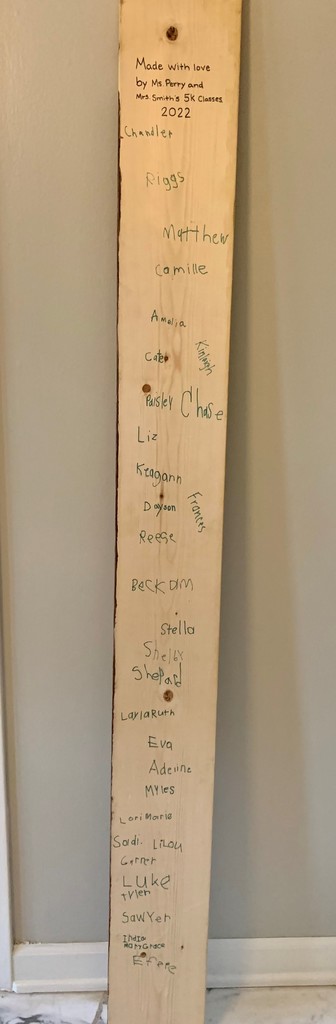 Made with love
by Ms. Perry and
Mrs. Smith's 5K Classes
2022
Chandler
Riggs
Matthew
Camille
Amalia
Kinleigh
Cate
Paisley Chase
Liz
Keagann
Dayoon
Frances
Reese
BeckAm
Stella
Shelby
Shepard
LaylaRuth
Eva
Adeline
Myles
LoriMarie
Sadi. LiLou
Garner
Luke
Tyler
Sawyer
India
MaryGrace